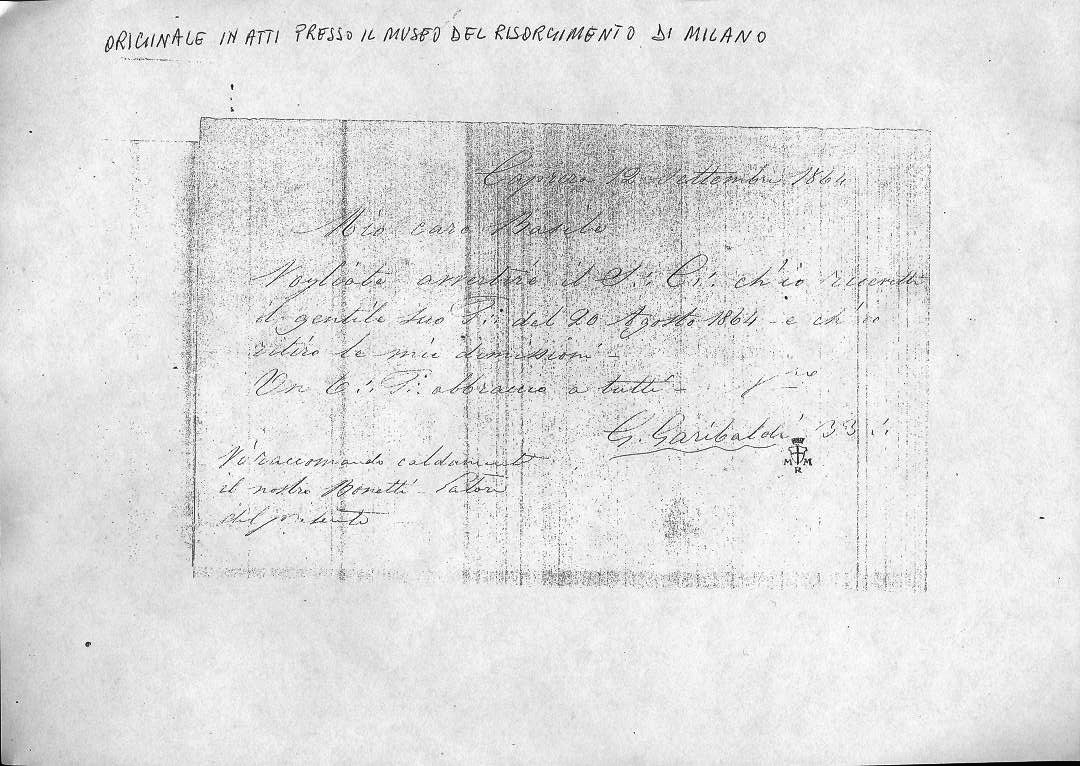 ORIGINALE IN ATTI PRESSO IL MUSEO DEL RISORGIMENTO DI MILANO
Caprera 12 Settembre 1864
Mio caro Basile
Vogliate avvertire il S∴ C∴ ch'io ricevetti
il gentile suo F∴ del 20 Agosto 1864 - e ch'io
ritiro le mie demissioni -
Un t∴ f∴ abbraccio a tutti - V.ro
G. Garibaldi 33∴
Vi raccomando caldamente
il nostro Bonetti - latore
del presente
M M
R